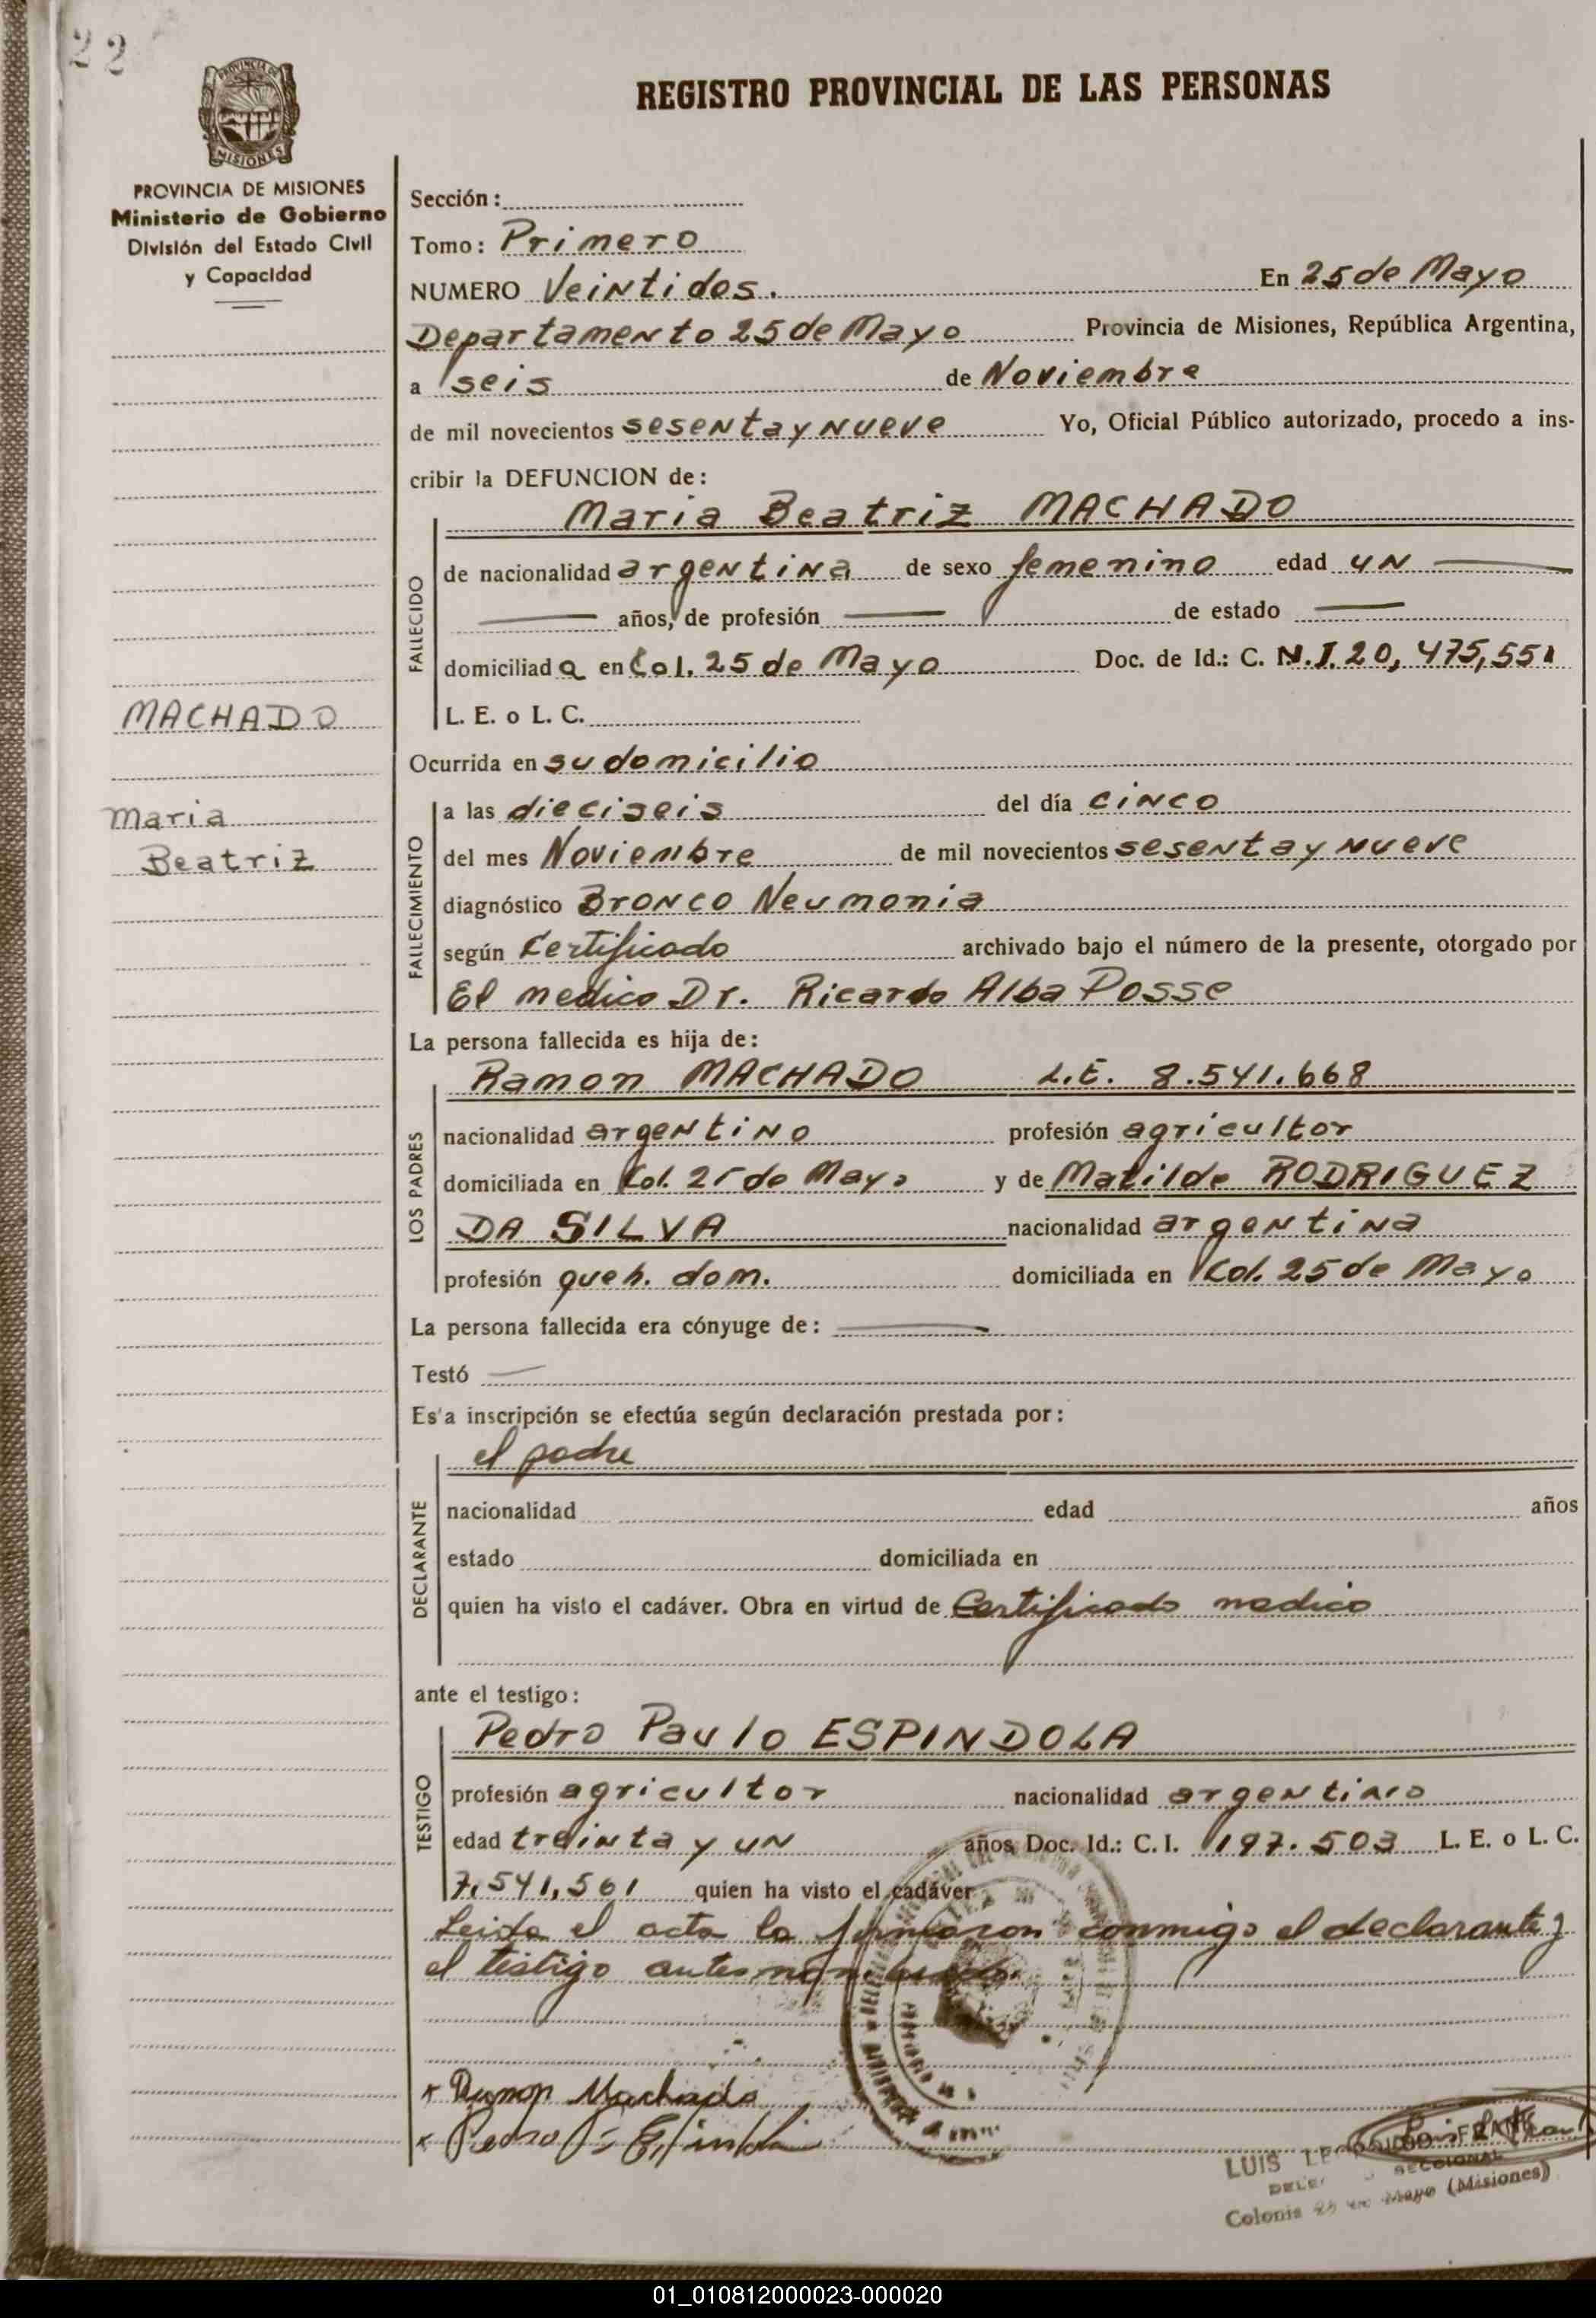 22
PROVINCIA DE
MISIONES
REGISTRO PROVINCIAL DE LAS PERSONAS
PROVINCIA DE MISIONES
Ministerio de Gobierno
División del Estado Civil
y Capacidad
MACHADO
Maria
Beatriz
Sección:
Tomo: Primero
NUMERO Veintidos. En 25 de Mayo
Departamento 25 de Mayo Provincia de Misiones, República Argentina,
a seis de Noviembre
de mil novecientos sesenta y nueve Yo, Oficial Público autorizado, procedo a ins-
cribir la DEFUNCION de:
Maria Beatriz MACHADO
FALLECIDO
de nacionalidad argentina de sexo femenino edad un
años, de profesión de estado
domiciliada en Col. 25 de Mayo Doc. de Id.: C. N.I. 20,475,551
L. E. o L. C.
Ocurrida en su domicilio
FALLECIMIENTO
a las dieciseis del día cinco
del mes Noviembre de mil novecientos sesenta y nueve
diagnóstico Bronco Neumonia
según Certificado archivado bajo el número de la presente, otorgado por
El medico Dr. Ricardo Alba Posse
La persona fallecida es hija de:
Ramon MACHADO L.E. 8.541.668
LOS PADRES
nacionalidad argentino profesión agricultor
domiciliada en Col. 25 de Mayo y de Matilde RODRIGUEZ
DA SILVA nacionalidad argentina
profesión queh. dom. domiciliada en Col. 25 de Mayo
La persona fallecida era cónyuge de:
Testó
Es'a inscripción se efectúa según declaración prestada por:
el padre
DECLARANTE
nacionalidad edad años
estado domiciliada en
quien ha visto el cadáver. Obra en virtud de Certificado medico
ante el testigo:
Pedro Paulo ESPINDOLA
TESTIGO
profesión agricultor nacionalidad argentino
edad treinta y un años Doc. Id.: C. I. 197.503 L. E. o L. C.
7,541,561 quien ha visto el cadáver
Leida el acta la firmaron conmigo el declarante y
el testigo antes
x Ramon Machado
x Pedro P. Espindola
LUIS FRANK
SECCIONAL
Colonia 25 de Mayo (Misiones)
01_010812000023-000020